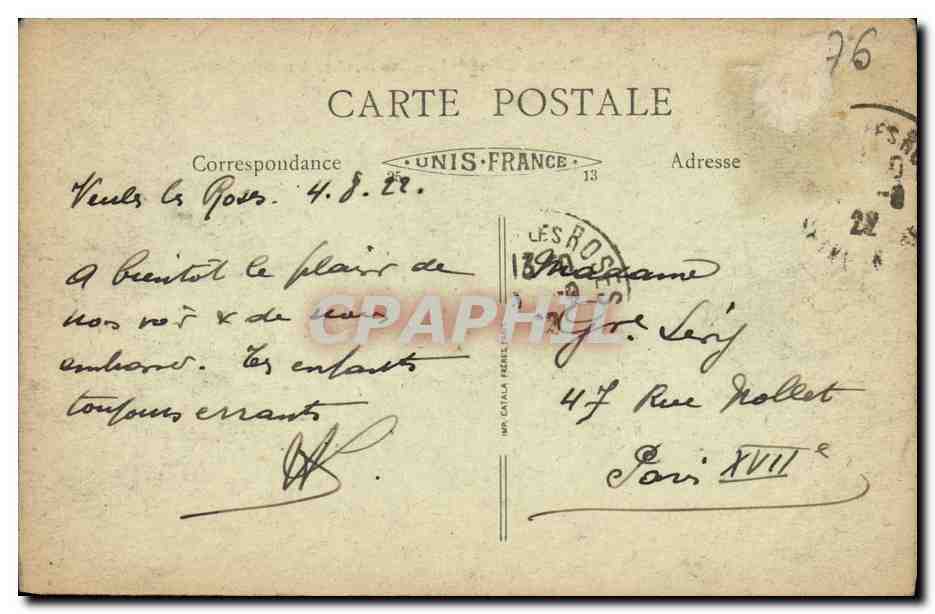 76
CARTE POSTALE
Correspondance
UNIS-FRANCE
Adresse
25
13
Veules les Roses. 4.8.22.
A bientôt le plaisir de
nos voir & de nous
embrasser. Tes enfants
toujours errants
LES ROSES
13
22
Madame
Gve. Lévy
47 Rue Nollet
Paris XVIIe
IMP. CATALA FRÈRES,
CPAPHIL